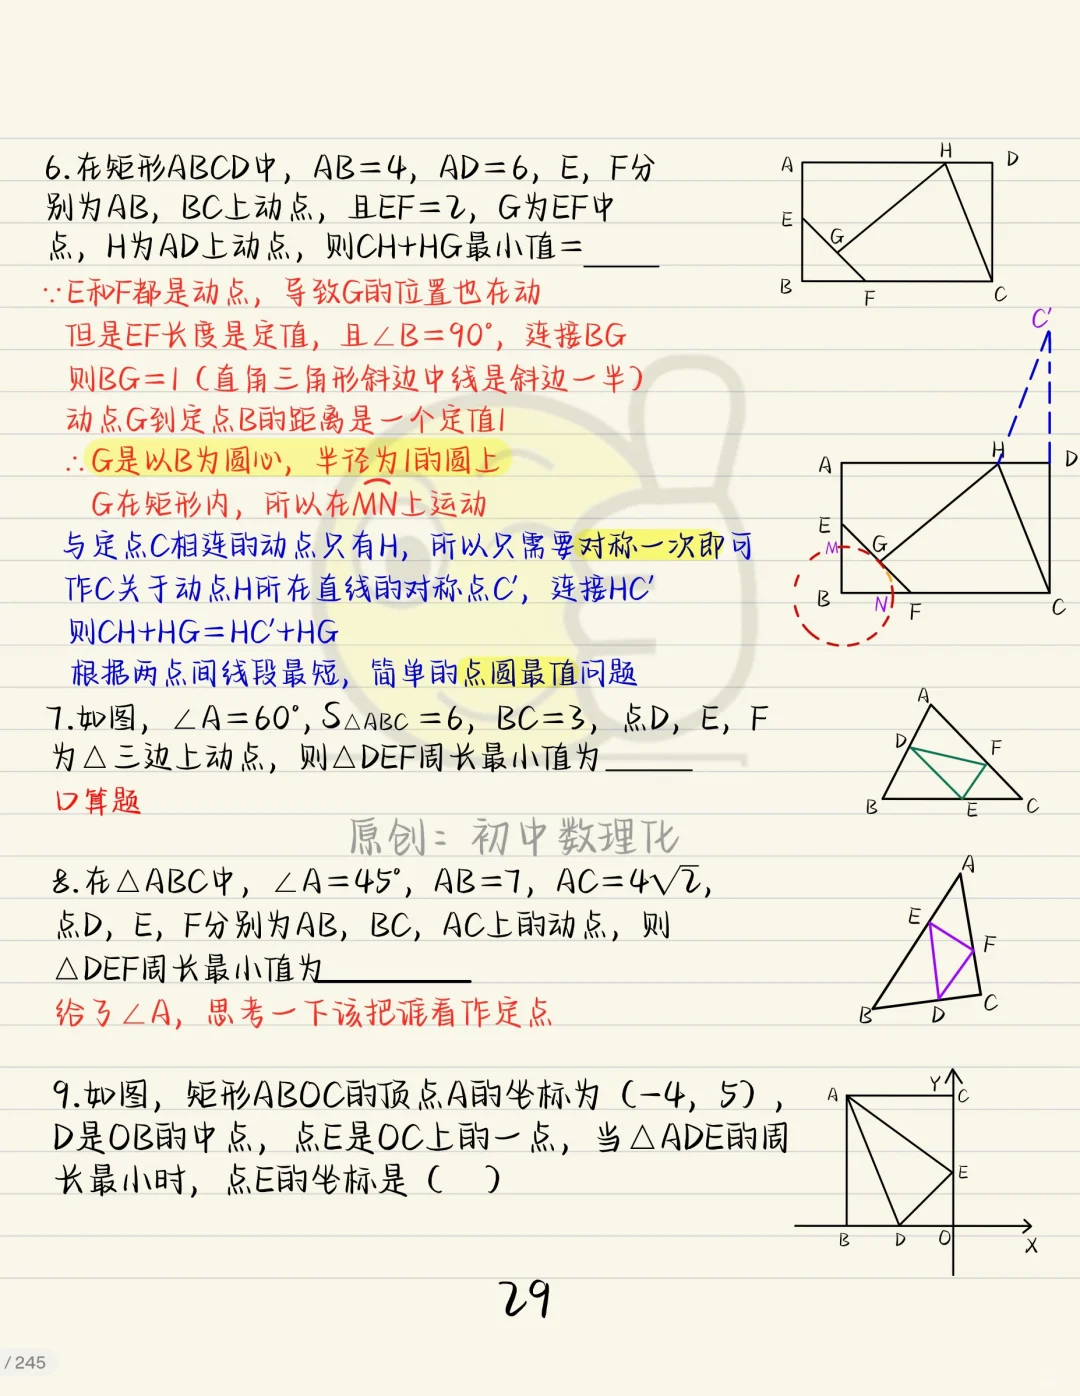 6.在矩形ABCD中，AB=4，AD=6，E，F分
别为AB，BC上动点，且EF=2，G为EF中
点，H为AD上动点，则CH+HG最小值=____
A
H
D
E
G
B
F
C
∵E和F都是动点，导致G的位置也在动
但是EF长度是定值，且∠B=90°，连接BG
则BG=1（直角三角形斜边中线是斜边一半）
动点G到定点B的距离是一个定值1
∴G是以B为圆心，半径为1的圆上
G在矩形内，所以在MN上运动
与定点C相连的动点只有H，所以只需要对称一次即可
作C关于动点H所在直线的对称点C′，连接HC′
则CH+HG=HC′+HG
根据两点间线段最短，简单的点圆最值问题
C′
A
H
D
E
M
G
B
N
F
C
7.如图，∠A=60°，S△ABC=6，BC=3，点D，E，F
为△三边上动点，则△DEF周长最小值为____
口算题
A
D
F
B
E
C
原创：初中数理化
8.在△ABC中，∠A=45°，AB=7，AC=4√2，
点D，E，F分别为AB，BC，AC上的动点，则
△DEF周长最小值为____
给了∠A，思考一下该把谁看作定点
A
E
F
B
D
C
9.如图，矩形ABOC的顶点A的坐标为（-4，5），
D是OB的中点，点E是OC上的一点，当△ADE的周
长最小时，点E的坐标是（ ）
Y
A
C
E
B
D
O
X
29
/ 245